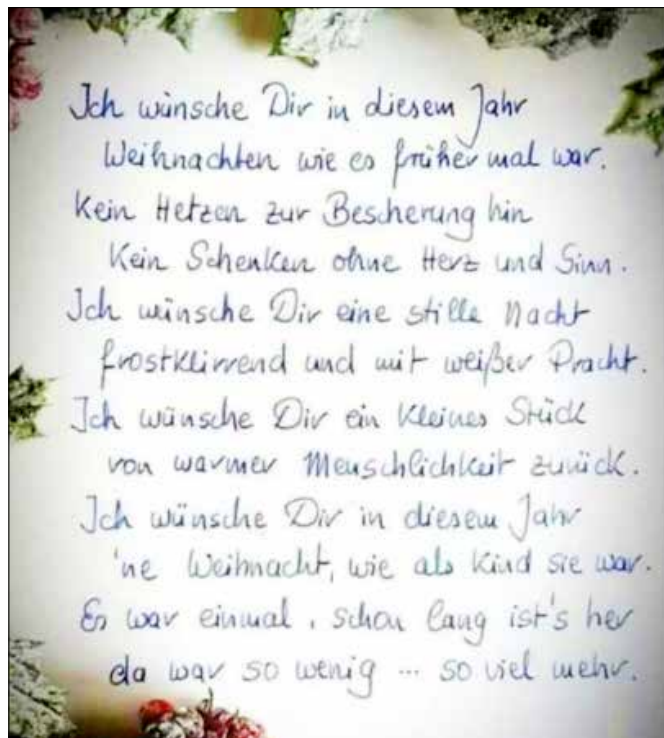 Ich wünsche Dir in diesem Jahr
Weihnachten wie es früher mal war.
Kein Hetzen zur Bescherung hin
Kein Schenken ohne Herz und Sinn.
Ich wünsche Dir eine stille Nacht
frostklirrend und mit weißer Pracht.
Ich wünsche Dir ein kleines Stück
von warmer Menschlichkeit zurück.
Ich wünsche Dir in diesem Jahr
'ne Weihnacht, wie als Kind sie war.
Es war einmal, schon lang ist's her
da war so wenig ... so viel mehr.